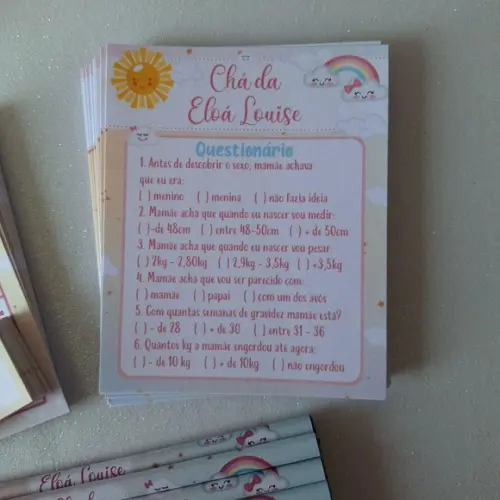 Chá da
Eloá Louise
Questionário
1. Antes de descobrir o sexo, mamãe achava
que eu era:
( ) menino ( ) menina ( ) não fazia ideia
2. Mamãe acha que quando eu nascer vou medir:
( ) -de 48cm ( ) entre 48-50cm ( ) + de 50cm
3. Mamãe acha que quando eu nascer vou pesar:
( ) 2kg - 2,80kg ( ) 2,9kg - 3,5kg ( ) +3,5kg
4. Mamãe acha que vou ser parecido com:
( ) mamãe ( ) papai ( ) com um dos avós
5. Com quantas semanas de gravidez mamãe está?
( ) - de 28 ( ) + de 30 ( ) entre 31 - 36
6. Quantos kg a mamãe engordou até agora:
( ) - de 10 kg ( ) + de 10kg ( ) não engordou
Eloá Louise